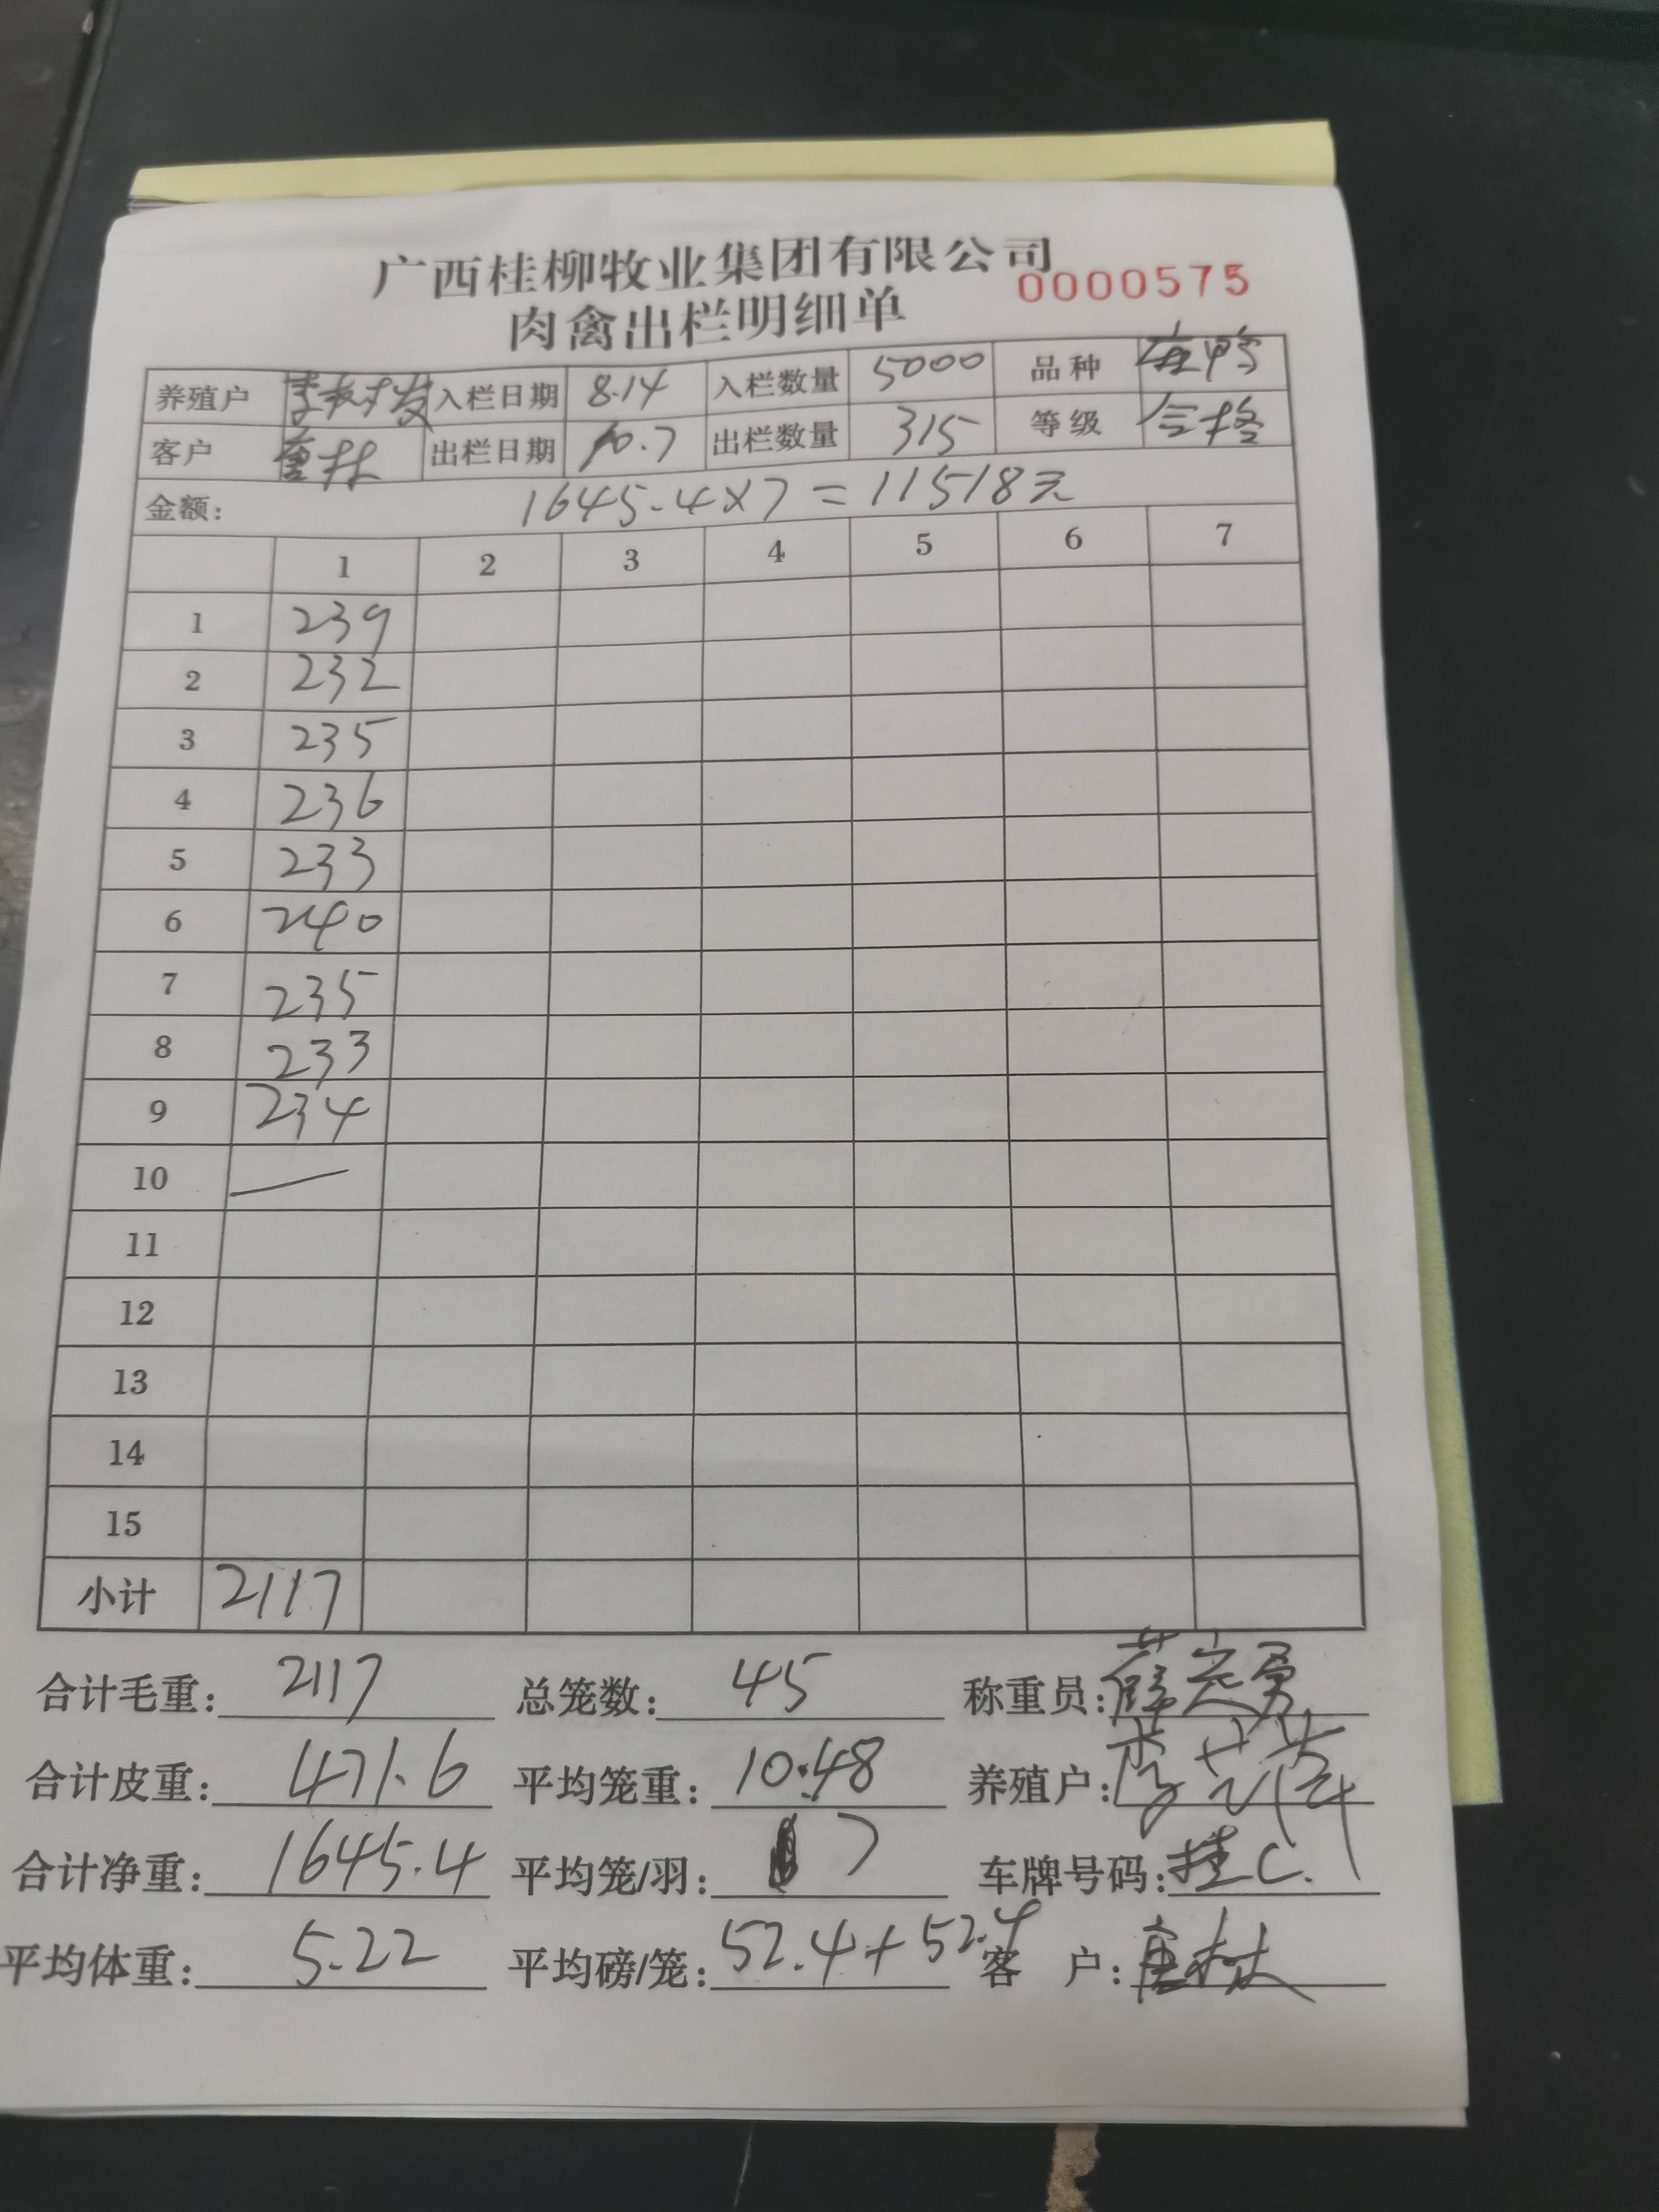 广西桂柳牧业集团有限公司
0000575
肉禽出栏明细单
养殖户 李 发 入栏日期 8.14 入栏数量 5000 品种 鸭
客户 唐林 出栏日期 10.7 出栏数量 315 等级 合格
金额: 1645.4×7=11518元
1 2 3 4 5 6 7
1 239
2 232
3 235
4 236
5 233
6 240
7 235
8 233
9 234
10 —
11
12
13
14
15
小计 2117
合计毛重: 2117 总笼数: 45 称重员: 薛定勇
合计皮重: 471.6 平均笼重: 10.48 养殖户: 李
合计净重: 1645.4 平均笼/羽: 7 车牌号码: 桂C.
平均体重: 5.22 平均磅/笼: 52.4+52.4 客 户: 唐林